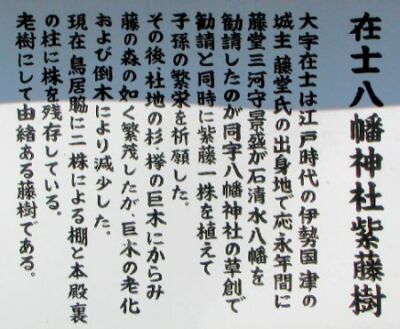 在士八幡神社紫藤樹
大字在士は江戸時代の伊勢国津の
城主藤堂氏の出身地で応永年間に
藤堂三河守景盛が石清水八幡を
勧請したのが同字八幡神社の草創で
勧請と同時に紫藤一株を植えて
子孫の繁栄を祈願した。
その後、社地の杉・欅の巨木にからみ
藤の森の如く繁茂したが、巨木の老化
および倒木により減少した。
現在鳥居脇に二株による棚と本殿裏
の柱に株を残存している。
老樹にして由緒ある藤樹である。